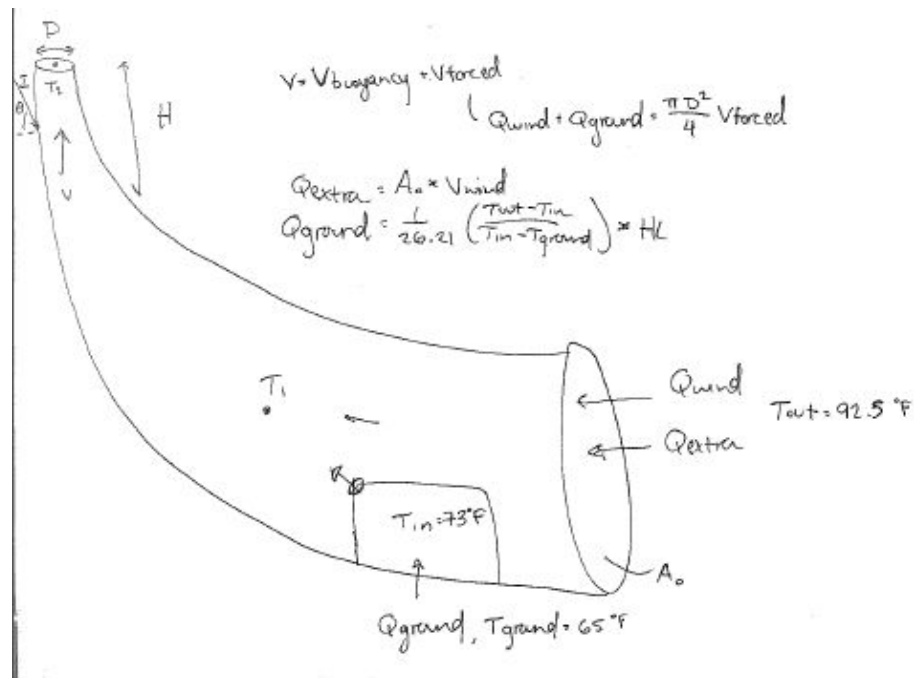 D
T₂
I
θ
H
V
V = Vbuoyancy + Vforced
Qwind + Qground = πD²/4 Vforced
Qextra = A₀ * Vwind
Qground = 1/26.21 (Tout - Tin / Tin - Tground) * HL
T₁
Qwind
Tout = 92.5 °F
Qextra
Tin = 73°F
A₀
Qground, Tground = 65 °F